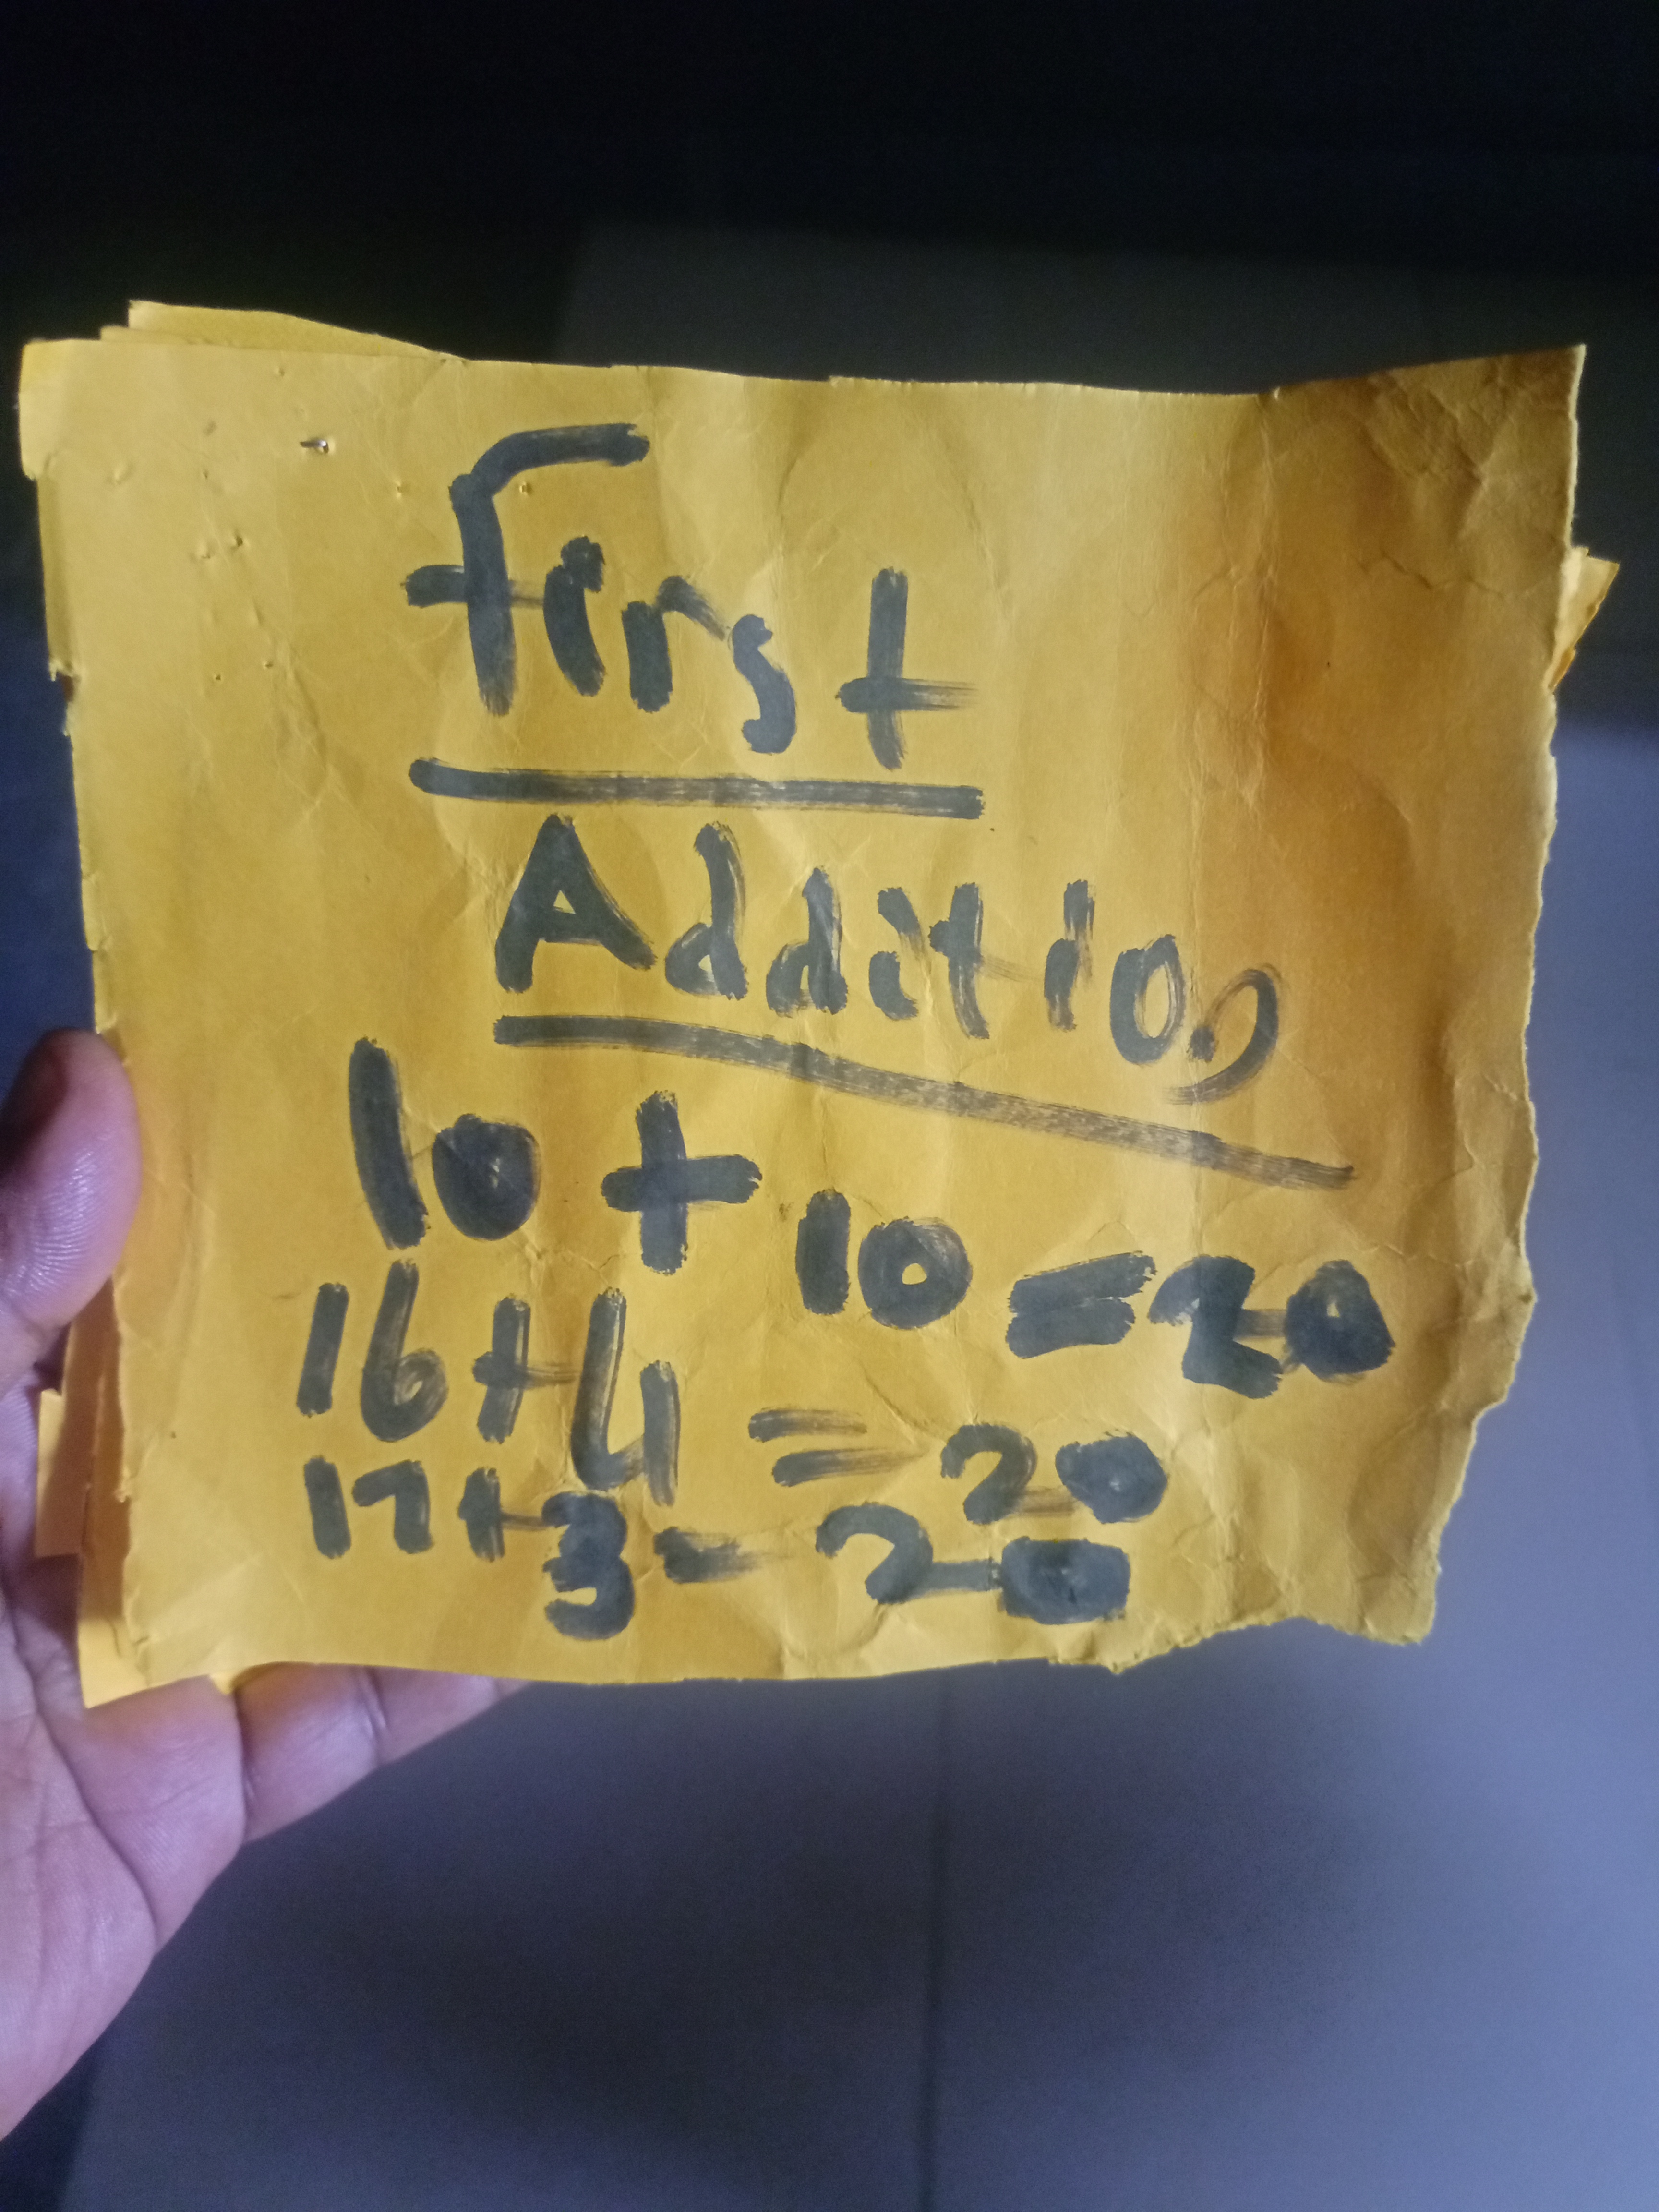 First
Addition
10 + 10 = 20
16 + 4 = 20
17 + 3 - 20